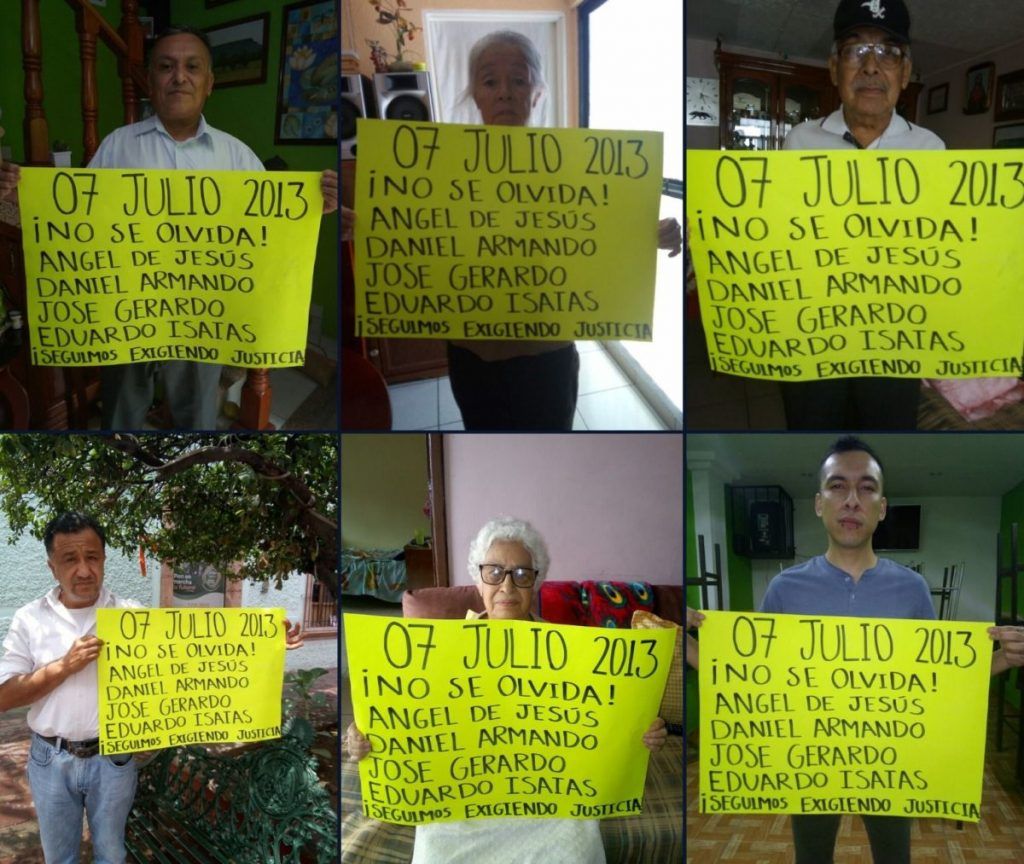 07 JULIO 2013
¡NO SE OLVIDA!
ANGEL DE JESÚS
DANIEL ARMANDO
JOSE GERARDO
EDUARDO ISAIAS
¡SEGUIMOS EXIGIENDO JUSTICIA
07 JULIO 2013
¡NO SE OLVIDA!
ANGEL DE JESÚS
DANIEL ARMANDO
JOSE GERARDO
EDUARDO ISAIAS
¡SEGUIMOS EXIGIENDO JUSTICIA
07 JULIO 2013
¡NO SE OLVIDA!
ANGEL DE JESÚS
DANIEL ARMANDO
JOSE GERARDO
EDUARDO ISAIAS
¡SEGUIMOS EXIGIENDO JUSTICIA
Plan en
marcha
07 JULIO 2013
¡NO SE OLVIDA!
ANGEL DE JESÚS
DANIEL ARMANDO
JOSE GERARDO
EDUARDO ISAIAS
¡SEGUIMOS EXIGIENDO JUSTICIA
07 JULIO 2013
¡NO SE OLVIDA!
ANGEL DE JESÚS
DANIEL ARMANDO
JOSE GERARDO
EDUARDO ISAIAS
¡SEGUIMOS EXIGIENDO JUSTICIA
07 JULIO 2013
¡NO SE OLVIDA!
ANGEL DE JESÚS
DANIEL ARMANDO
JOSE GERARDO
EDUARDO ISAIAS
¡SEGUIMOS EXIGIENDO JUSTICIA